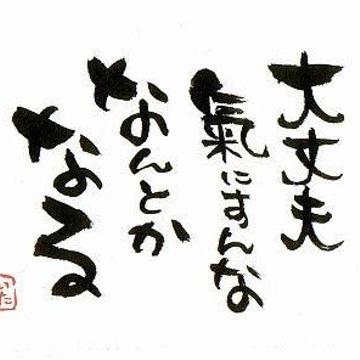 大丈夫
氣にすんな
なんとか
なる